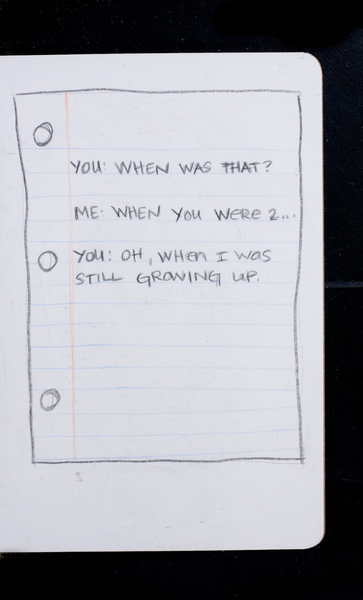 YOU: WHEN WAS THAT?
ME: WHEN YOU WERE 2...
YOU: OH, WHEN I WAS
STILL GROWING UP.